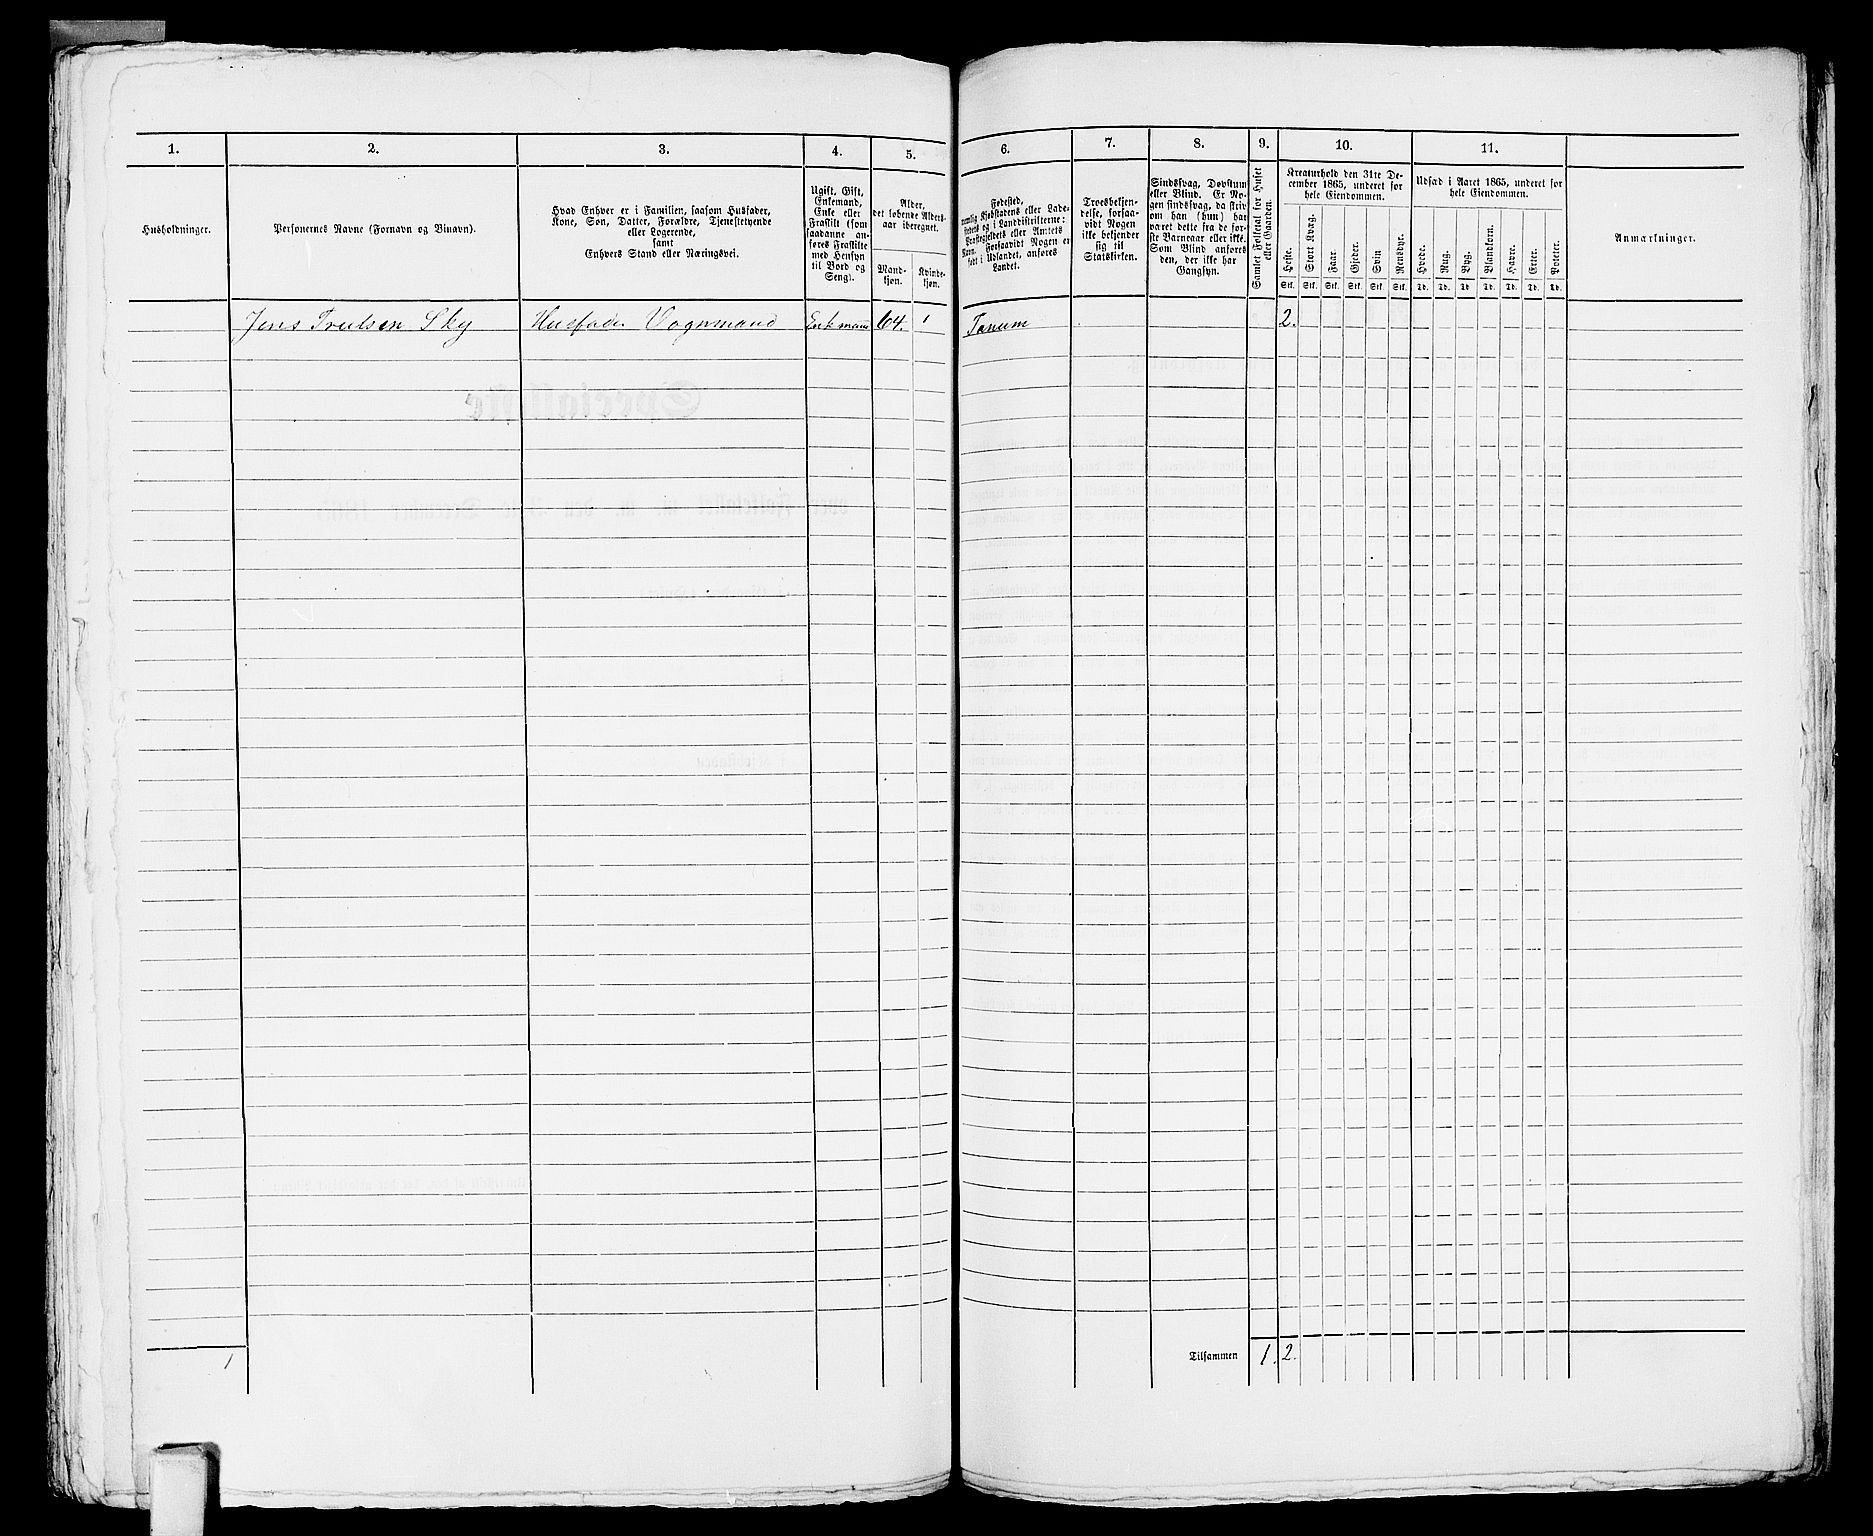 1. 2. 3. 4. 5. 6. 7. 8. 9. 10. 11.
Husholdninger.
Personernes Navne (Fornavn og Binavn).
Hvad Enhver er i Familien, saasom Husfader,
Kone, Søn, Datter, Forældre, Tjenestetyende
eller Logerende,
samt
Enhvers Stand eller Næringsvei.
Ugift, Gift,
Enkemand,
Enke eller
Fraskilt (som
saadanne an-
føres Fraskilte
med Hensyn
til Bord og
Seng).
Alder,
det løbende Alders-
aar iberegnet.
Mand-
kjøn.
Kvinde-
kjøn.
Fødested,
nemlig Kjøbstadens eller Lade-
stedets og i Landdistrikterne:
Præstegjeldets eller Amtets
Navn. Forsaavidt Nogen er
født i Udlandet, anføres
Landet.
Troesbekjen-
delse, forsaa-
vidt Nogen
ikke bekjender
sig til
Statskirken.
Sindssvag, Døvstum
eller Blind. Er No-
gen sindssvag, da skriv
om han (hun) har
været dette fra de før-
ste Barneaar eller ikke.
Som Blind anføres
den, der ikke har
Gangsyn.
Samlet Folketal for Huset
eller Gaarden.
Kreaturhold den 31te De-
cember 1865, underet for
hele Eiendommen.
Heste. Stort Kvæg. Faar. Gjeder. Svin Rensdyr.
Stk. Stk. Stk. Stk. Stk. Stk.
Udsæd i Aaret 1865, underet for
hele Eiendommen.
Hvede. Rug. Byg. Blandkorn. Havre. Erter. Poteter.
Td. Td. Td. Td. Td. Td. Td.
Anmærkninger.
Jens Trulsen Sky Husfader Vognmand Enkmand 64. 1 Tanum 2.
1 Tilsammen 1. 2.